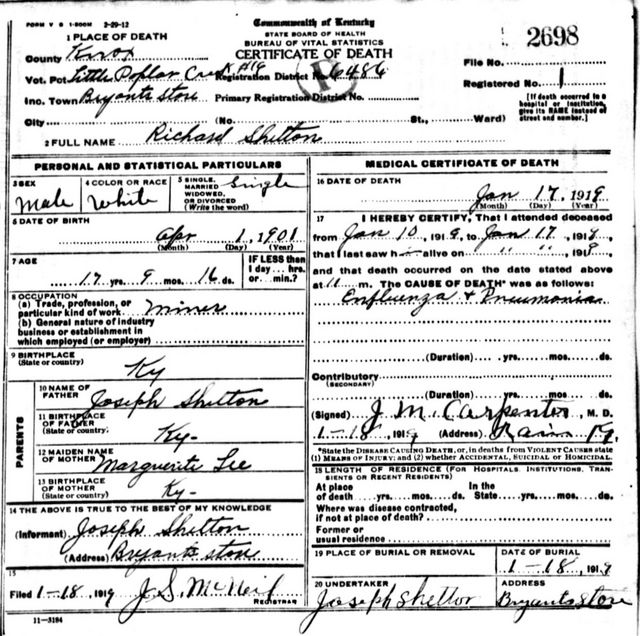 FORM V S 1-500M 2-29-12
Commonwealth of Kentucky
STATE BOARD OF HEALTH
BUREAU OF VITAL STATISTICS
CERTIFICATE OF DEATH
1 PLACE OF DEATH
County Knox
Vot. Pct Little Poplar Creek Registration District No. 6486
Inc. Town Bryants Store Primary Registration District No.
City (No. St., Ward)
File No. 2698
Registered No. 1
[If death occurred in a hospital or institution, give its NAME instead of street and number.]
2 FULL NAME Richard Shelton
PERSONAL AND STATISTICAL PARTICULARS
3 SEX Male
4 COLOR OR RACE White
5 SINGLE, MARRIED WIDOWED, OR DIVORCED (Write the word) Single
6 DATE OF BIRTH
Apr 1, 1901
(Month) (Day) (Year)
7 AGE
17 yrs 9 mos. 16 ds.
IF LESS than 1 day... hrs. or min.?
8 OCCUPATION
(a) Trade, profession, or particular kind of work Miner
(b) General nature of industry business or establishment in which employed (or employer)
9 BIRTHPLACE
(State or country) Ky
PARENTS
10 NAME OF FATHER Joseph Shelton
11 BIRTHPLACE OF FATHER
(State or country) Ky-
12 MAIDEN NAME OF MOTHER Marguerite Lee
13 BIRTHPLACE OF MOTHER
(State or country) Ky-
14 THE ABOVE IS TRUE TO THE BEST OF MY KNOWLEDGE
(Informant) Joseph Shelton
(Address) Bryants Store
15
Filed 1-18, 1919 J.S. McNeil
REGISTRAR
11-3184
MEDICAL CERTIFICATE OF DEATH
16 DATE OF DEATH
Jan 17, 1919
(Month) (Day) (Year)
17 I HEREBY CERTIFY, That I attended deceased
from Jan 10, 1919, to Jan 17, 1919,
that I last saw h alive on " " ", 1919
and that death occurred on the date stated above
at 11 m. The CAUSE OF DEATH* was as follows:
Enfluenza & Pneumonia
(Duration) yrs. mos. ds.
Contributory
(SECONDARY)
(Duration) yrs. mos. ds.
(Signed) J. M. Carpenter, M. D.
1-18, 1919 (Address)
*State the DISEASE CAUSING DEATH, or, in deaths from VIOLENT CAUSES state
(1) MEANS OF INJURY; and (2) whether ACCIDENTAL, SUICIDAL or HOMICIDAL.
18 LENGTH OF RESIDENCE (FOR HOSPITALS, INSTITUTIONS, TRANSIENTS OR RECENT RESIDENTS)
At place of death yrs. mos. ds. In the State yrs. mos. ds.
Where was disease contracted, if not at place of death?
Former or usual residence
19 PLACE OF BURIAL OR REMOVAL
DATE OF BURIAL
1-18, 1919
20 UNDERTAKER
Joseph Shelton
ADDRESS
Bryants Store